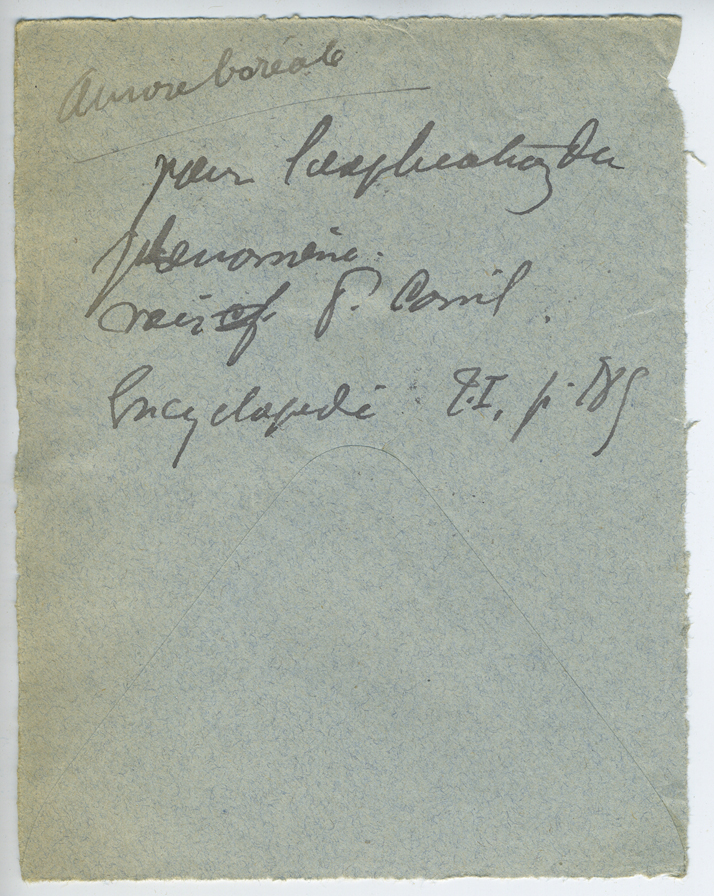 Aurore boréale
pour l'explication du
phénomène.
voir P. Comil.
Encyclopédie T.I, p. 189